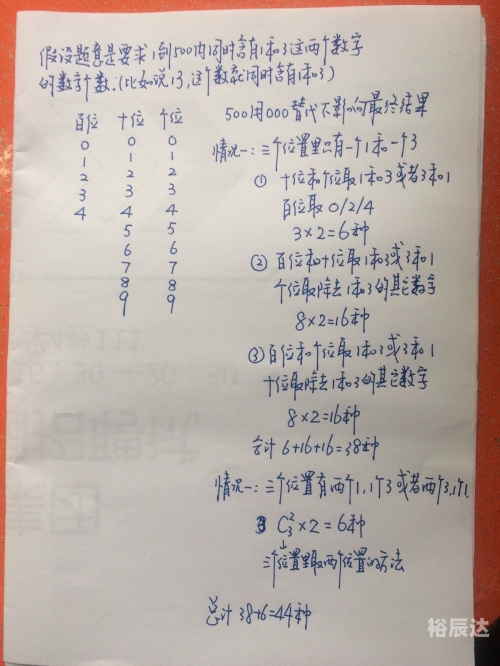 假设题意是要求1到500内同时含有1和3这两个数字
的数字个数.(比如说13,这个数就同时含有1和3)
百位 十位 个位
0 0 0
1 1 1
2 2 2
3 3 3
4 4 4
5 5
6 6
7 7
8 8
9 9
500用000替代不影响最终结果
情况一:三个位置里只有一个1和一个3
① 十位和个位取1和3或者3和1
百位取0/2/4
3×2=6种
② 百位和十位取1和3或3和1
个位取除去1和3的其它数字
8×2=16种
③ 百位和个位取1和3或3和1
十位取除去1和3的其它数字
8×2=16种
合计6+16+16=38种
情况一:三个位置有两个1,1个3或者两个3,1个1.
C₃²×2=6种
↓
三个位置里取两个位置的方法
总计38+6=44种
裕辰达